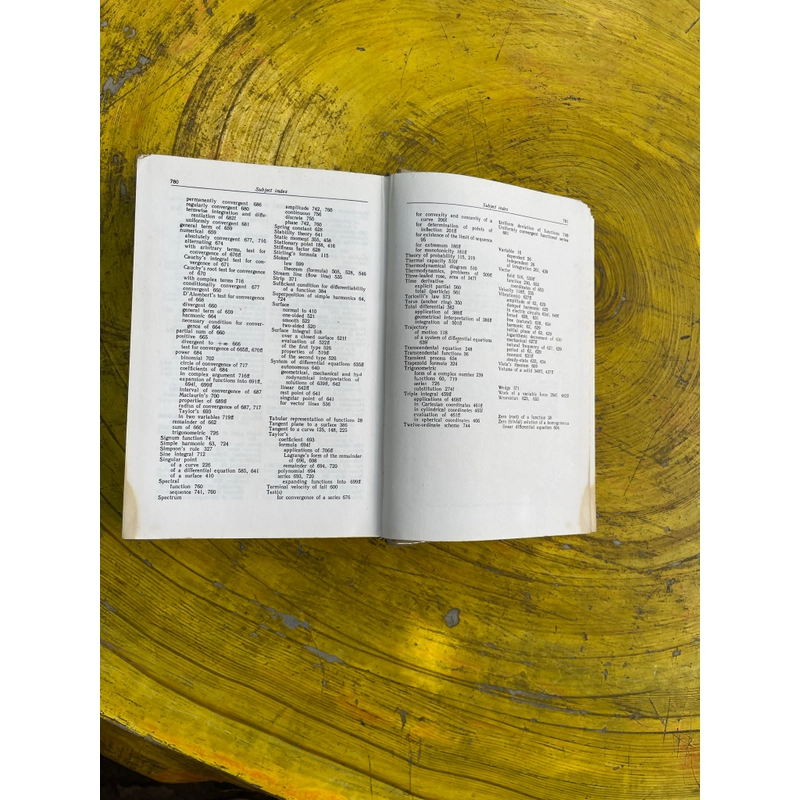 780
Subject index
permanently convergent 686
regularly convergent 680
termwise integration and diffe-
rentiation of 682f
uniformly convergent 681
general term of 659
numerical 659
absolutely convergent 677, 716
alternating 674
with arbitrary terms, test for
convergence of 676ff
Cauchy's integral test for con-
vergence of 671
Cauchy's root test for convergence
of 670
with complex terms 716
conditionally convergent 677
convergent 660
D'Alembert's test for convergence
of 668
divergent 660
general term of 659
harmonic 664
necessary condition for conver-
gence of 664
partial sum of 660
positive 665
divergent to +∞ 666
test for convergence of 665ff, 670ff
power 684
binomial 702
circle of convergence of 717
coefficients of 684
in complex argument 716ff
expansion of functions into 691ff,
694f, 699ff
interval of convergence of 687
Maclaurin's 700
properties of 689ff
radius of convergence of 687, 717
Taylor's 693
in two variables 719ff
remainder of 662
sum of 660
trigonometric 726
Signum function 74
Simple harmonic 63, 724
Simpson's rule 327
Sine integral 712
Singular point
of a curve 226
of a differential equation 585, 641
of a surface 410
Spectral
function 760
sequence 741, 760
Spectrum
amplitude 742, 760
continuous 756
discrete 756
phase 742, 760
Spring constant 628
Stability theory 641
Static moment 355, 458
Stationary point 188, 416
Stiffness factor 628
Stirling's formula 115
Stokes'
law 599
theorem (formula) 505, 538, 546
Stream line (flow line) 535
Strip 371
Sufficient condition for differentiability
of a function 384
Superposition of simple harmonics 64,
724
Surface
normal to 410
one-sided 521
smooth 522
two-sided 520
Surface integral 518
over a closed surface 521f
evaluation of 522f
of the first type 526
properties of 519ff
of the second type 526
System of differential equations 635ff
autonomous 640
geometrical, mechanical and hyd-
rodynamical interpretation of
solutions of 639ff, 642
linear 642ff
rest point of 641
singular point of 641
for vector lines 536
Tabular representation of functions 28
Tangent plane to a surface 386
Tangent to a curve 125, 148, 225
Taylor's
coefficient 693
formula 694f
applications of 700ff
Lagrange's form of the remainder
of 696, 698
remainder of 694, 720
polynomial 694
series 693, 720
expanding functions into 699ff
Terminal velocity of fall 600
Test(s)
for convergence of a series 676
Subject index
781
for convexity and concavity of a
curve 206f
for determination of points of
inflection 201ff
for existence of the limit of sequence
95
for extremum 180ff
for monotonicity 181ff
Theory of probability 115, 216
Thermal capacity 510f
Thermodynamical diagram 510
Thermodynamics, problems of 509ff
Three-leafed rose, area of 347f
Time derivative
explicit partial 560
total (particle) 561
Toricelli's law 573
Torus (anchor ring) 350
Total differential 382
application of 389ff
geometrical interpretation of 386ff
integration of 501ff
Trajectory
of motion 118
of a system of differential equations
639
Transcendental equation 248
Transcendental functions 36
Transient process 634
Trapezoid formula 324
Trigonometric
form of a complex number 239
functions 60, 719
series 726
substitution 274f
Triple integral 459ff
applications of 468ff
in Cartesian coordinates 461ff
in cylindrical coordinates 465f
evaluation of 461ff
in spherical coordinates 466
Twelve-ordinate scheme 744
Uniform deviation of functions 748
Uniformly convergent functional series
Variable 18
dependent 26
independent 26
of integration 261, 439
Vector
field 534, 535f
function 230, 553
coordinates of
Velocity 118f, 231
Vibration(s) 627ff
amplitude of 63, 629
damped harmonic 629
in electric circuits 634, 646f
forced 628, 631
free (natural) 628, 634
harmonic 63, 629
initial phase of 63, 629
logarithmic decrement of 630
mechanical 627ff
natural frequency of 627, 629
period of 63, 629
resonant 631ff
steady-state 632, 634
Vieta's theorem 609
Volume of a solid 348ff, 437ff
Wedge 371
Work of a variable force 294f, 495ff
Wronskian 623, 650
Zero (root) of a function 38
Zero (trivial) solution of a homogeneous
linear differential equation 604